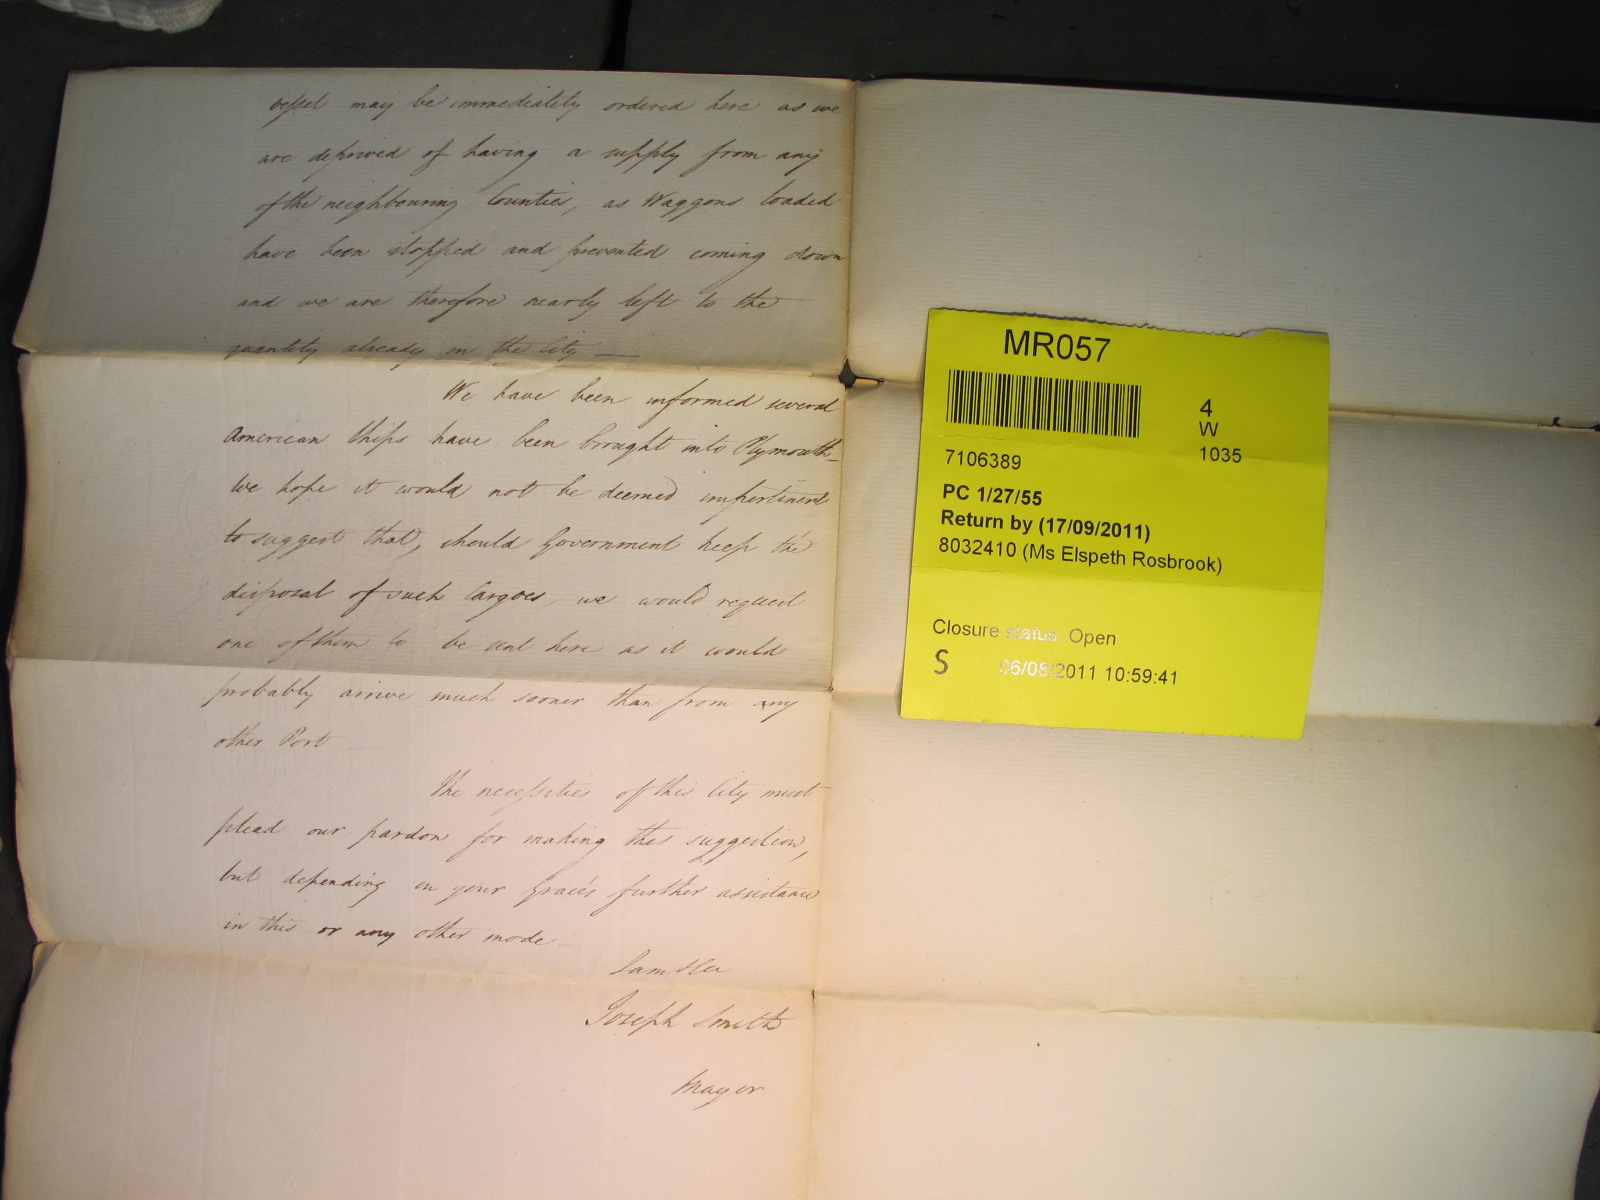 vessel may be immediately ordered here as we
are deprived of having a supply from any
of the neighbouring Counties, as Waggons loaded
have been stopped and prevented coming down
and we are therefore nearly left to the
quantity already in the City —
We have been informed several
American Ships have been brought into Plymouth —
We hope it would not be deemed impertinent
to suggest that, should Government keep the
disposal of such Cargoes, we would request
one of them to be sent here as it would
probably arrive much sooner than from any
other Port —
The necessities of this City must
plead our pardon for making this suggestion,
but depending on your Grace's further assistance
in this or any other mode —
I am &ca
Joseph Smith
Mayor
MR057
4
W
1035
7106389
PC 1/27/55
Return by (17/09/2011)
8032410 (Ms Elspeth Rosbrook)
Closure status: Open
S 06/08/2011 10:59:41